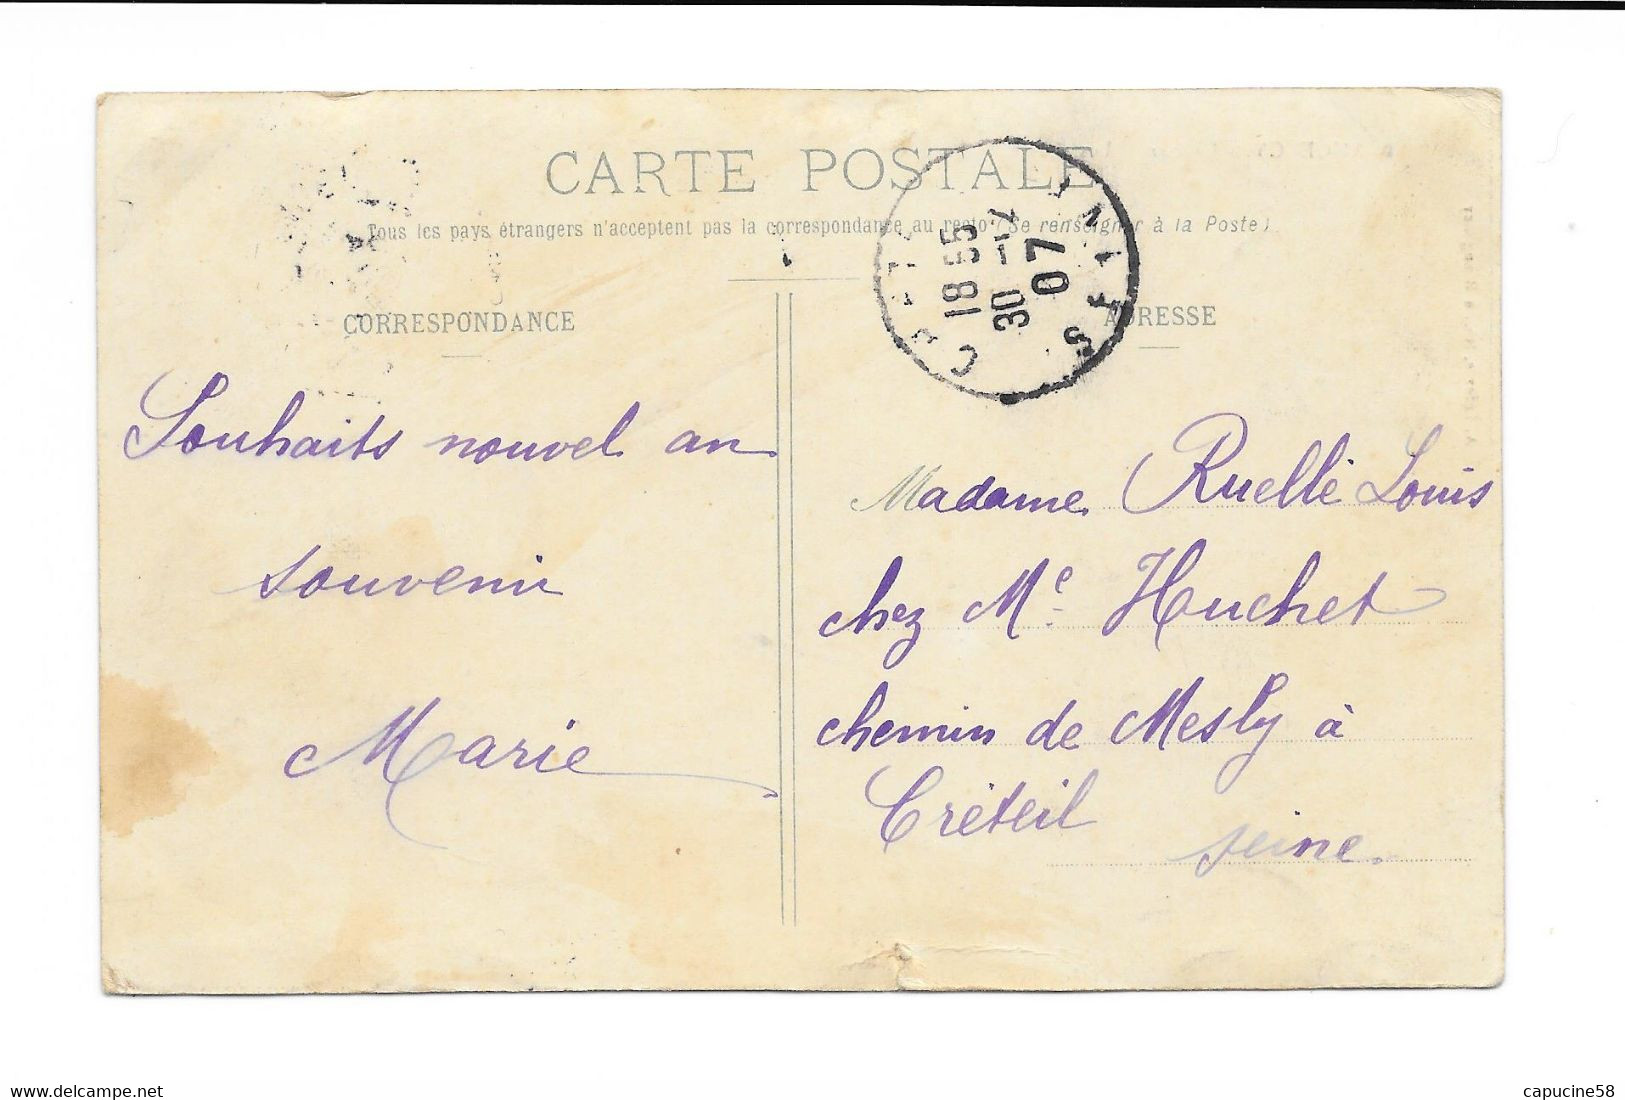 CARTE POSTALE
Tous les pays étrangers n'acceptent pas la correspondance au recto (Se renseigner à la Poste)
CORRESPONDANCE
ADRESSE
18 55
30 -12
07
SEINE
Souhaits nouvel an
souvenir
Marie
Madame Ruellé Louis
chez Me Huchet
chemin de Mesly à
Créteil
seine.
delcampe.net
capucine58